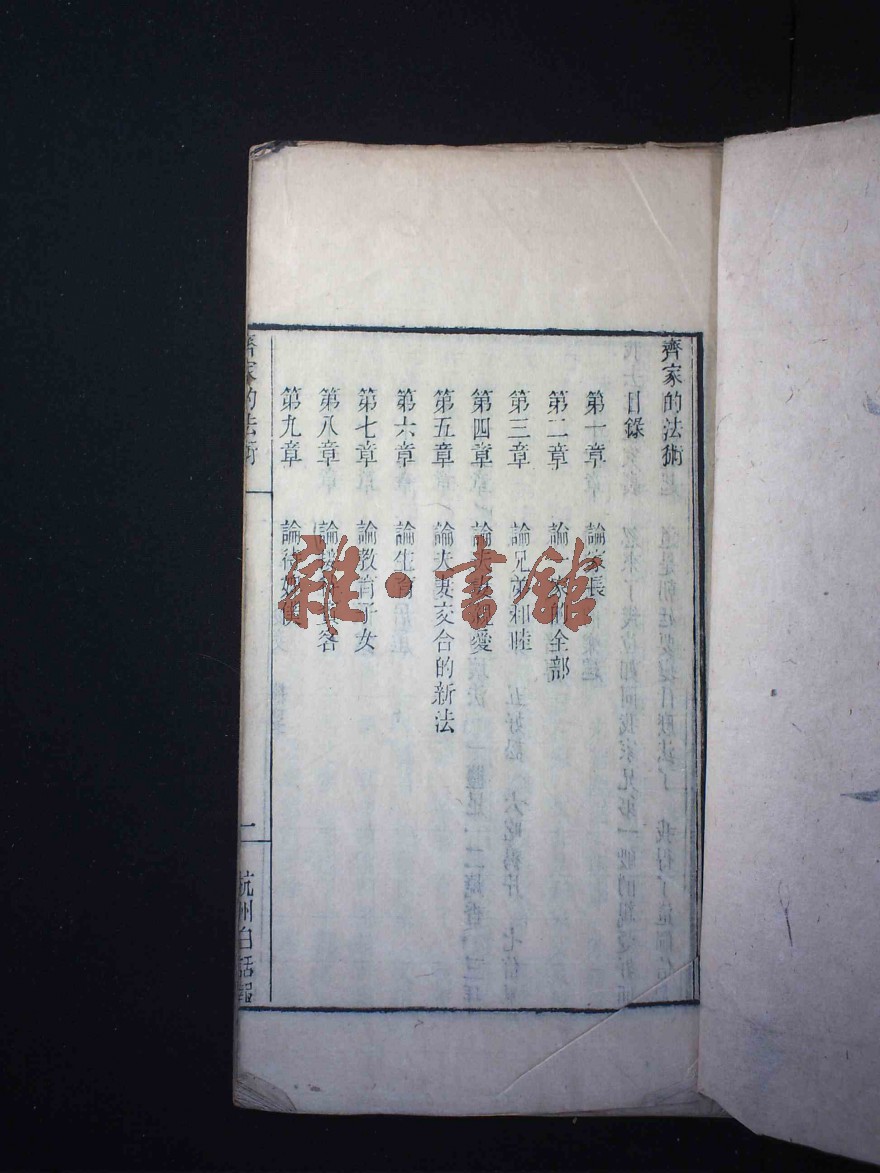 齊家的法術
目錄
第一章 論家長
第二章 論一家的全部
第三章 論兄弟和睦
第四章 論夫妻相愛
第五章 論夫妻交合的新法
第六章 論生育
第七章 論教育子女
第八章 論接待賓客
第九章 論待奴僕
齊家的法術
二
杭州白話報
雜·書館